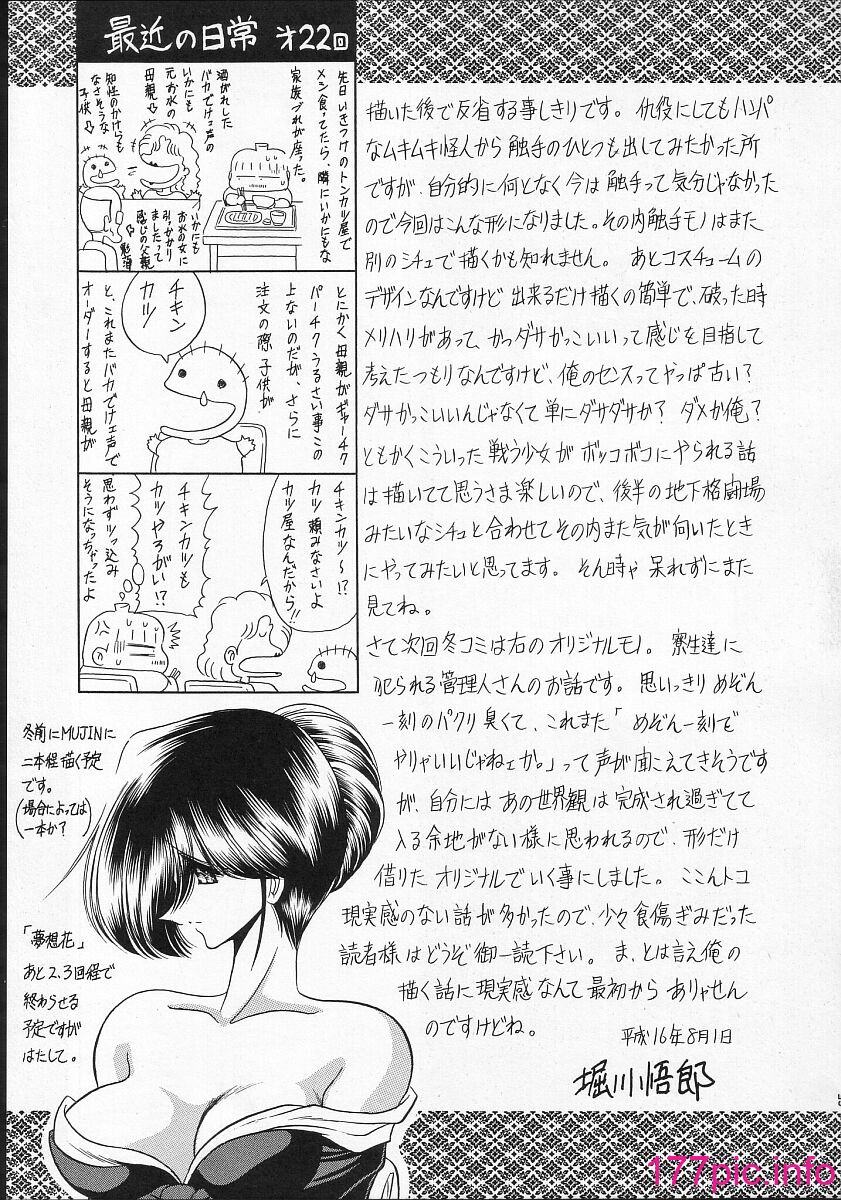 最近の日常 オ22回
先日いきつけのトンカツ屋で
メシ食ってたら、隣にいかにもな
家族づれが座った。
酒がれした
バカでけェ声の
いかにも
元お水の
母親⇨
知性のかけらも
なさそうな
子供⇨
いかにも
お水の女に
引っかかり
ましたって
感じの父親
とにかく母親がギャーチク
パーチクうるさい事この
上ないのだが、さらに
注文の際 子供が
チキン
カツ
と、これまたバカでけェ声で
オーダーすると母親が
チキンカツ～!?
カツ頼みなさいよ
カツ屋なんだから!!
チキンカツも
カツやろがい!?
思わずツっ込み
そうになっちゃったよ
描いた後で反省する事しきりです。仇役にしてもハンパ
なムキムキ怪人から触手のひとつも出してみたかった所
ですが、自分的に何となく今は触手って気分じゃなかった
ので今回はこんな形になりました。その内触手モノはまた
別のシチュで描くかも知れません。あとコスチュームの
デザインなんですけど出来るだけ描くの簡単で、破った時
メリハリがあって、かつダサかっこいいって感じを目指して
考えたつもりなんですけど、俺のセンスってやっぱ古い?
ダサかっこいいんじゃなくて単にダサダサか? ダメか俺?
ともかくこういった戦う少女がボッコボコにヤられる話
は描いてて思うさま楽しいので、後半の地下格闘場
みたいなシチュと合わせてその内また気が向いたとき
にやってみたいと思ってます。そん時ゃ呆れずにまた
見てね。
さて次回冬コミは右のオリジナルモノ。寮生達に
犯られる管理人さんのお話です。思いっきりめぞん
一刻のパクリ臭くて、これまた「めぞん一刻で
やりゃいいじゃねェか。」って声が聞こえてきそうです
が、自分にはあの世界観は完成され過ぎてて
入る余地がない様に思われるので、形だけ
借りたオリジナルでいく事にしました。ここんトコ
現実感のない話が多かったので、少々食傷ぎみだった
読者様はどうぞ御一読下さい。ま、とは言え俺の
描く話に現実感なんて最初からありゃせん
のですけどね。
平成16年8月1日
堀川悟郎
冬前にMUJINに
二本程描く予定
です。
(場合によっては
一本か?)
「夢想花」
あと2,3回程で
終わらせる
予定ですが
はたして。
177pic.info